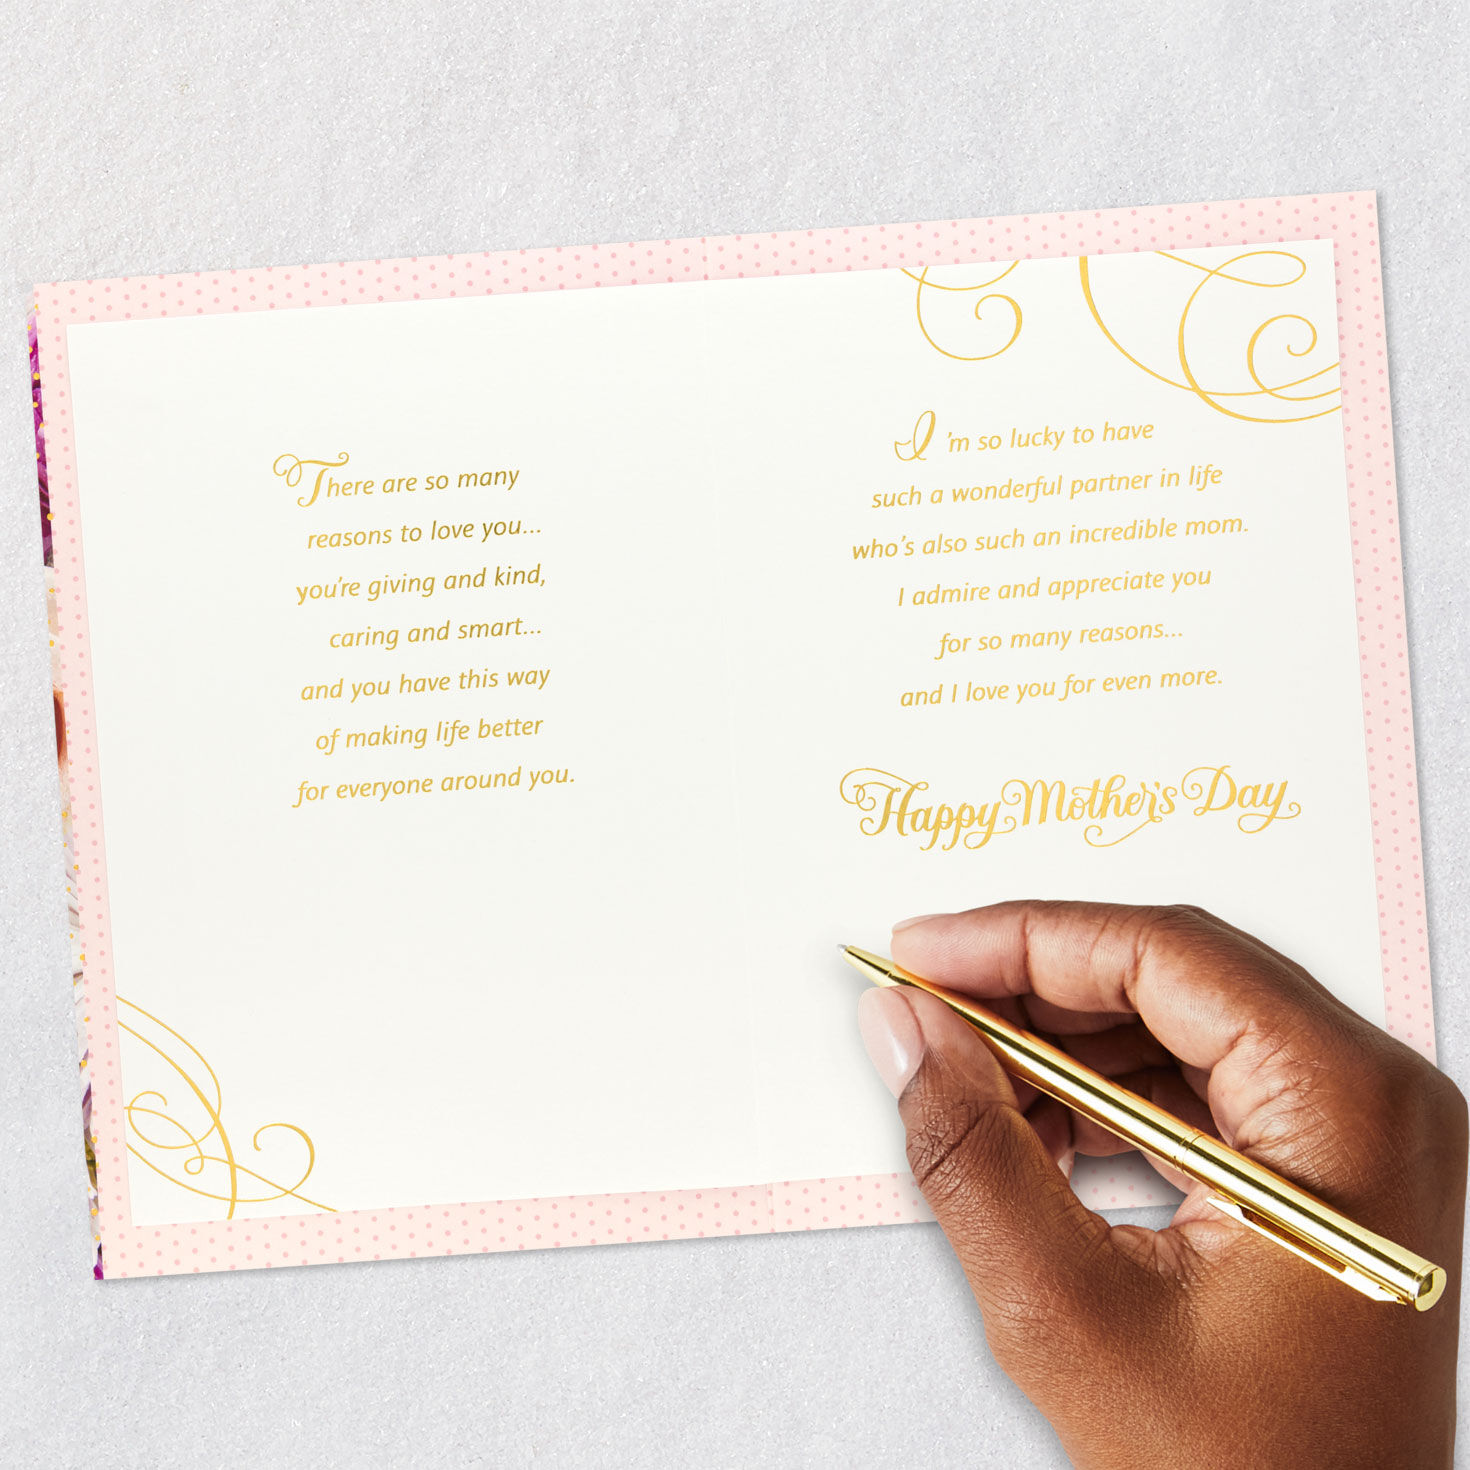 There are so many
reasons to love you...
you're giving and kind,
caring and smart...
and you have this way
of making life better
for everyone around you.
I'm so lucky to have
such a wonderful partner in life
who's also such an incredible mom.
I admire and appreciate you
for so many reasons...
and I love you for even more.
Happy Mother's Day